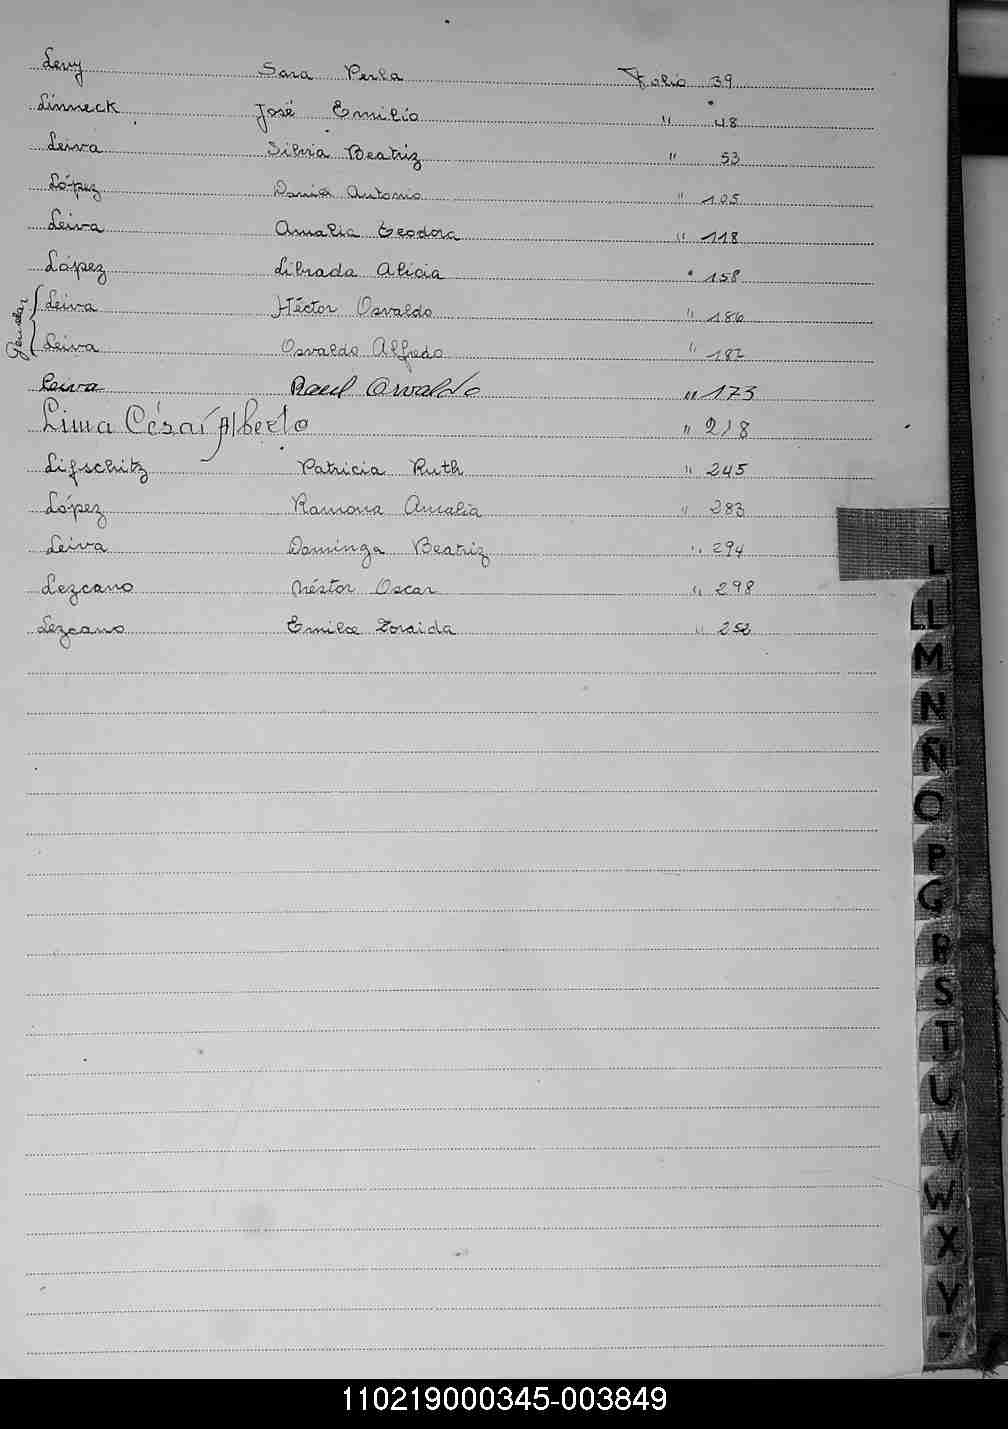 Levy Sara Perla Folio 39
Linneck José Emilio " 48
Leiva Silvia Beatriz " 53
López Dania Antonio " 105
Leiva Amalia Teodora " 118
López Librada Alicia " 158
Leiva Héctor Osvaldo " 186
Leiva Osvaldo Alfredo " 182
Leiva Raul Osvaldo " 173
Lima César Alberto " 218
Lifschitz Patricia Ruth " 245
López Ramona Amalia " 283
Leiva Dominga Beatriz " 294
Lezcano Néstor Oscar " 298
Lezcano Emilce Zoraida "
L
LL
M
N
Ñ
O
P
Q
R
S
T
U
V
W
X
Y
110219000345-003849